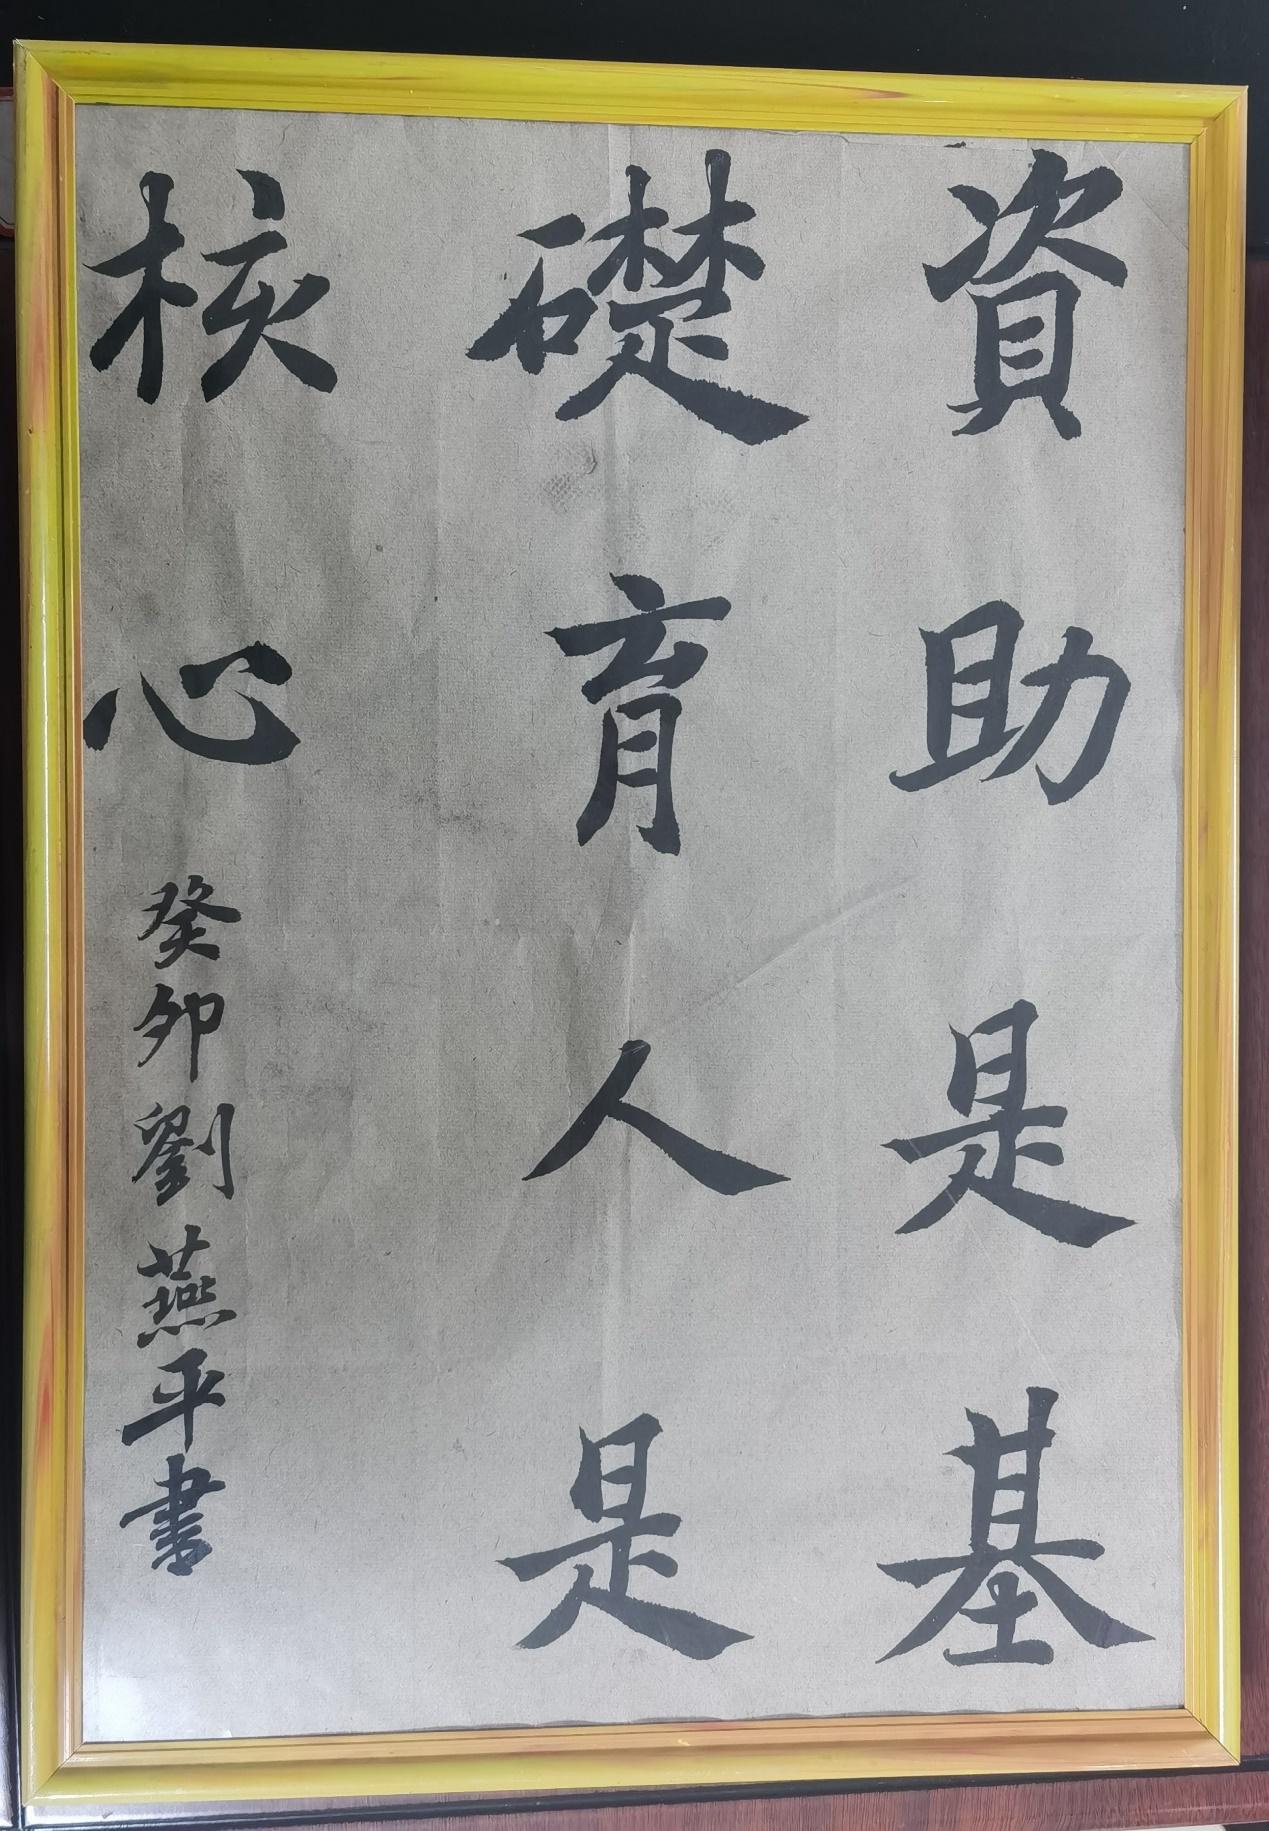 資助是基
礎育人是
核心
癸卯劉燕平書